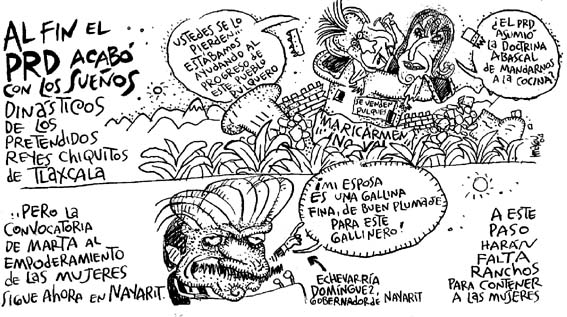 AL FIN EL
PRD ACABÓ
CON LOS SUEÑOS
DINÁSTICOS
DE LOS
PRETENDIDOS
REYES CHIQUITOS
DE TLAXCALA
USTEDES SE LO
PIERDEN...
ESTÁBAMOS
AYUDANDO AL
PROGRESO DE
ESTE PUEBLO
PULQUERO
¡EL PRD
ASUMIÓ
LA DOCTRINA
ABASCAL
DE MANDARNOS
A LA COCINA!
SE VENDEN
PULQUES
MARICARMEN
¡¡NO VA!
...PERO LA
CONVOCATORIA
DE MARTA AL
EMPODERAMIENTO
DE LAS MUJERES
SIGUE AHORA EN NAYARIT.
¡MI ESPOSA
ES UNA GALLINA
FINA, DE BUEN PLUMAJE
PARA ESTE
GALLINERO!
ECHEVARRÍA
DOMÍNGUEZ,
GOBERNADOR DE NAYARIT
A ESTE
PASO
HARÁN
FALTA
RANCHOS
PARA CONTENER
A LAS MUJERES